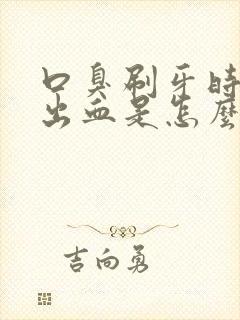 口臭刷牙时
出血是怎麽
吉向勇